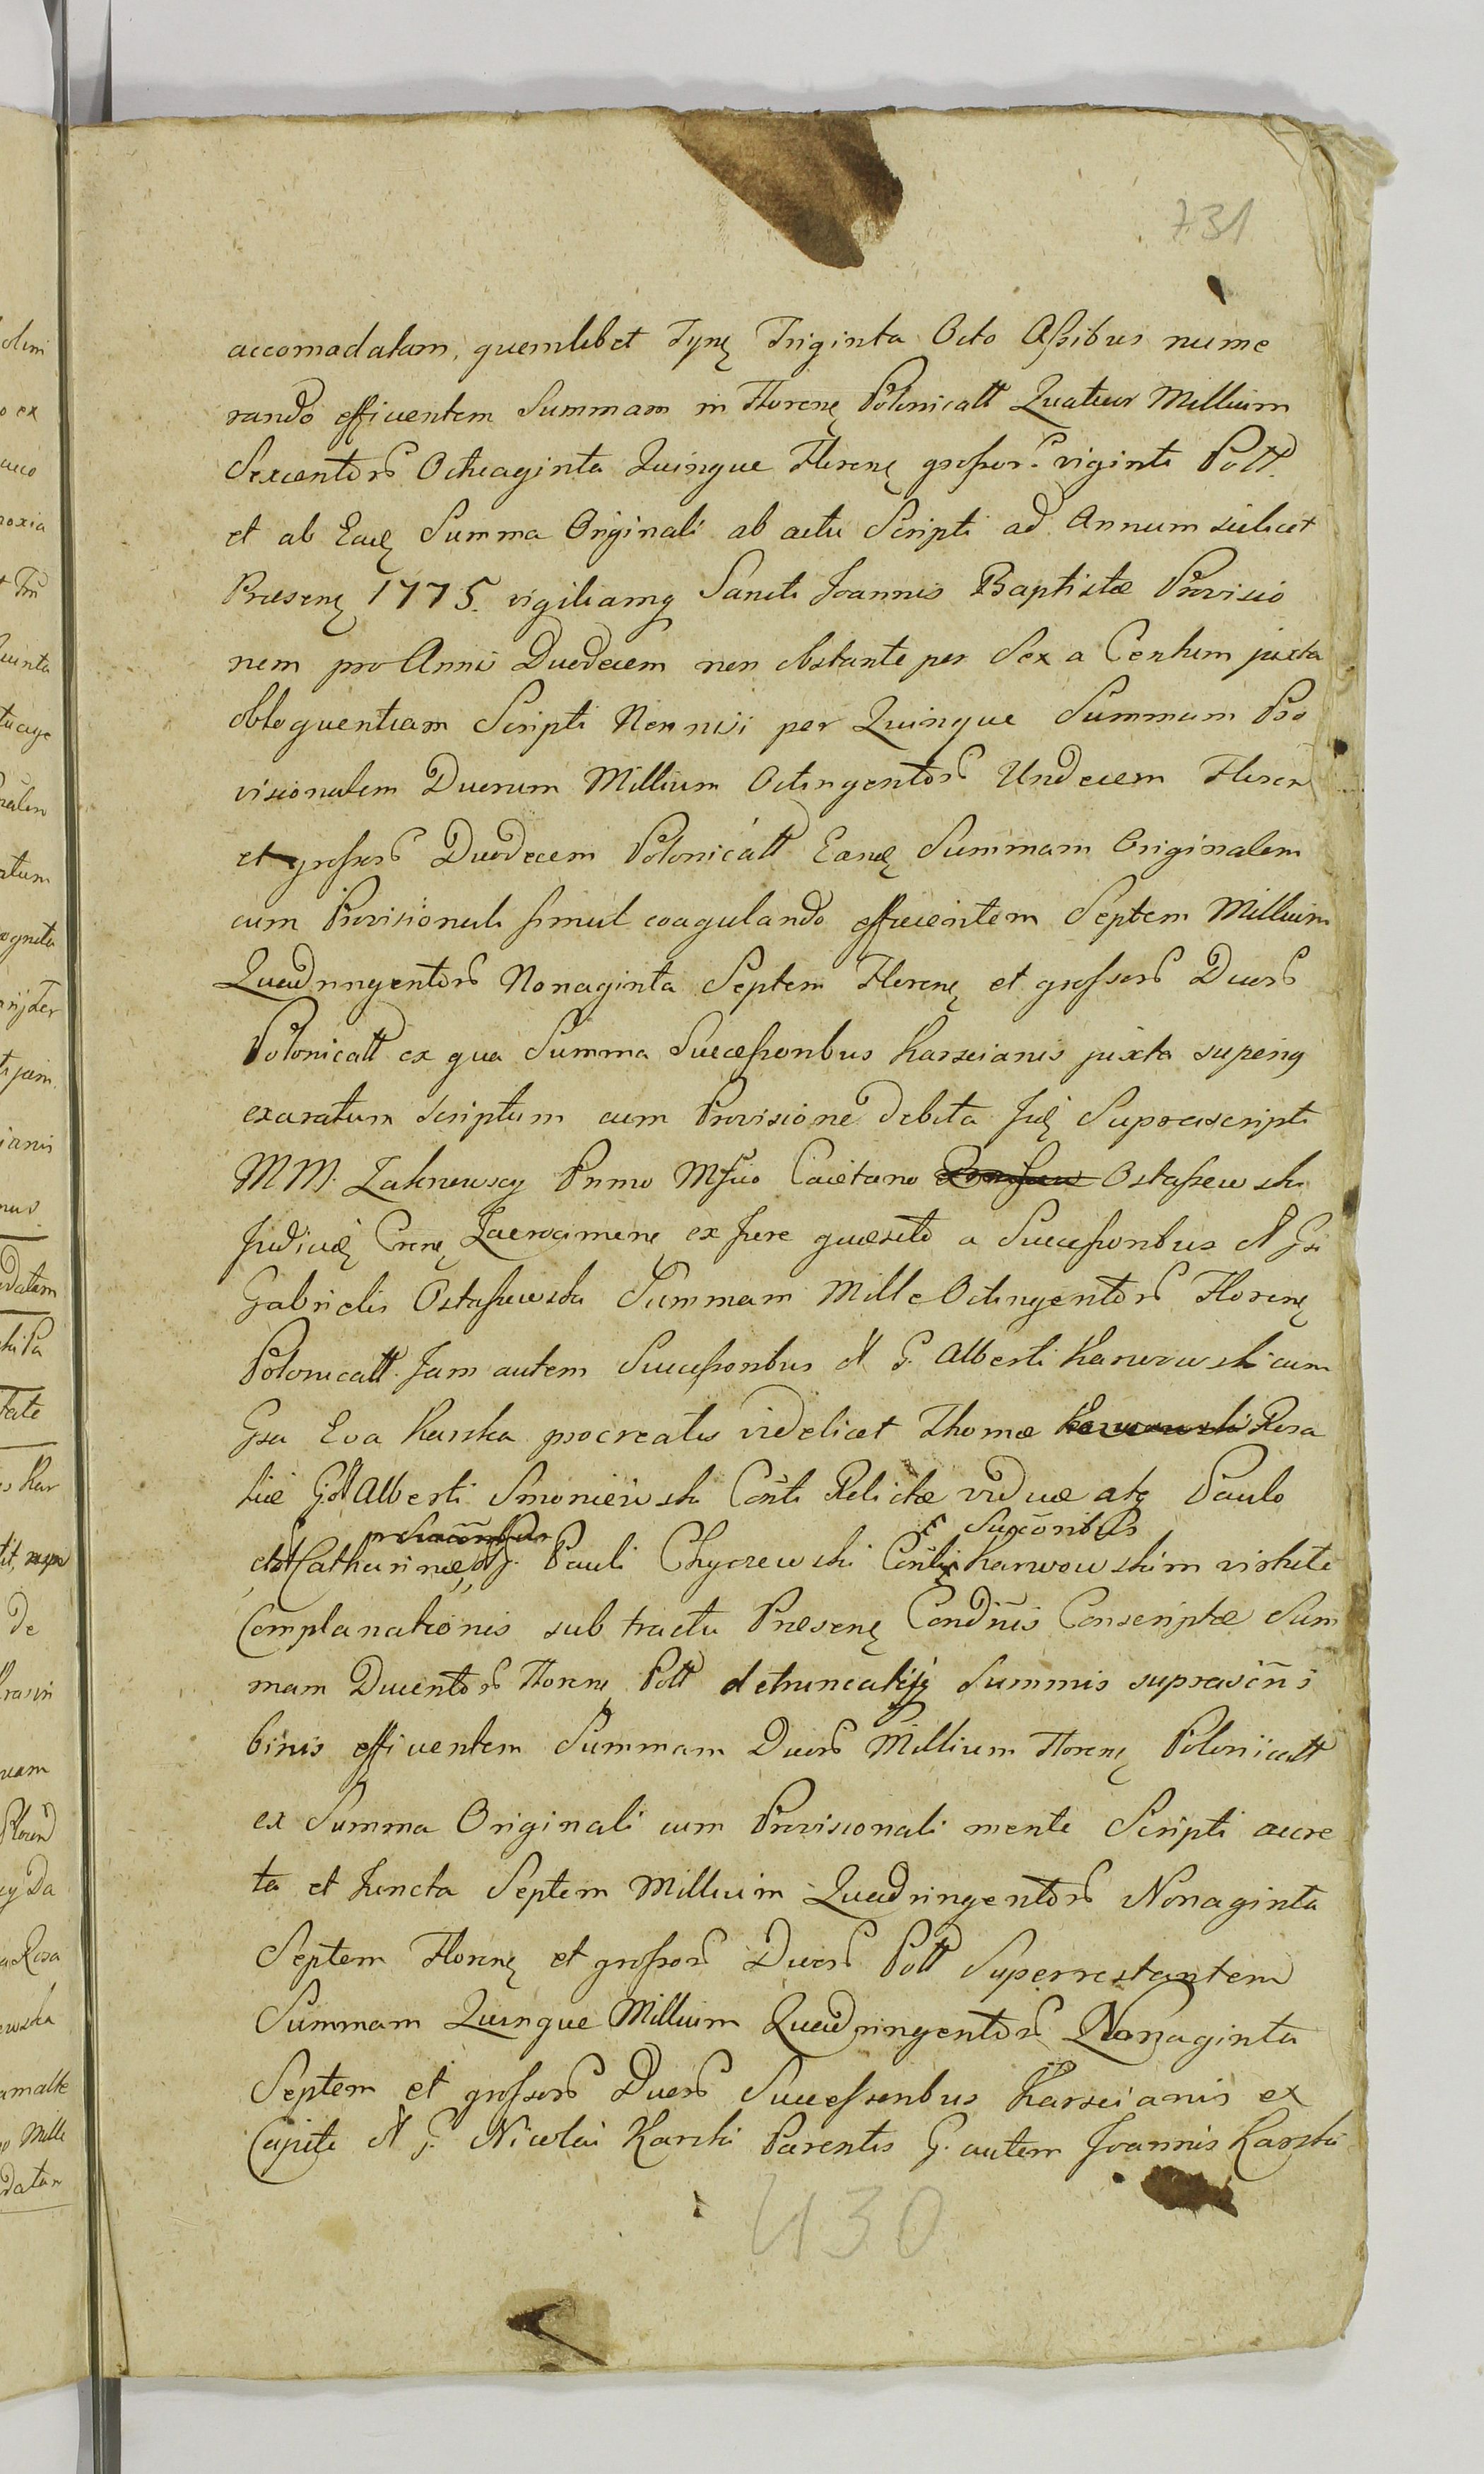 731
accomodatam, quemlibet Tynę Triginta Octo Assibus nume
rando efficientem Summam in Florenę Polonicall Quatuor Millium
Sexcentors Octuaginta Quinque Florenę grossor. viginti Poll.
et ab Eadę Summa Originali ab actu Scripti ad Annum scilicet
Præsenę 1775. vigiliamq Sancti Joannis Baptistæ Provisio
nem pro Annis Duodecem non obstante per Sex a Centum juxta
obloquentiam Scripti Non nisi per Quinque Summam Pro
visionalem Duorum Millium Octingentors Undecem Floren
et grossors Duodecem Polonicall Eandę Summam Originalem
cum Provisionali simul coagulando efficientem Septem Millium
Quadringentors Nonaginta Septem Florenę et grossors Duors
Polonicall ex qua Summa Successoribus Karscianis juxta superiq
exaratum scriptum cum Provisione debita Judę Suprascripti
MM. Zakrewscy Primo Msfico Caietano Ostassewski
Judiciadę Crenę ex Jure quæsito a Successoribus N Gsi
Gabrielis Ostassewski Summam Mille Octingentors Florenę
Polonicall. Jam autem Successoribus N G. Alberti Karwowski cum
Gsa Eva Karska procreatis videlicet Thomæ Karwowski Rosa
liæ Gsi Alberti Smoniewski Conti Relictæ viduæ atq Paulo
Succonibus
et Catharinæ G. Pauli Chyczewski Conti Karwowskim virtute
Complanationis sub tractu Præsenę Condnis Conscriptæ Sum
mam Ducentors Florenę Poll detruncatisq Summis suprascnis
binis efficientem Summam Duors Millium Florenę Polonicall
ex Summa Originali cum Provisionali mente Scripti accre
ta et Juncta Septem Millium Quadringentors Nonaginta
Septem Florenę et grossors Duors Poll Superrestantem
Summam Quinque Millium Quadringentors Nonaginta
Septem et grossors Duors Successoribus Karscianis ex
Capite N G. Nicolai Karski Parentis G. autem Joannis Karski
430